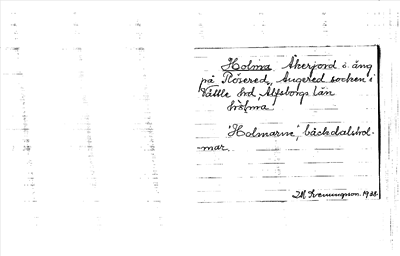 Holma Åkerjord o. äng
på Rösered, Angered socken i
Vättle hd, Älfsborgs län
'Holmarne', bäckdalshol-
-mar.
Svenningson. 1928.